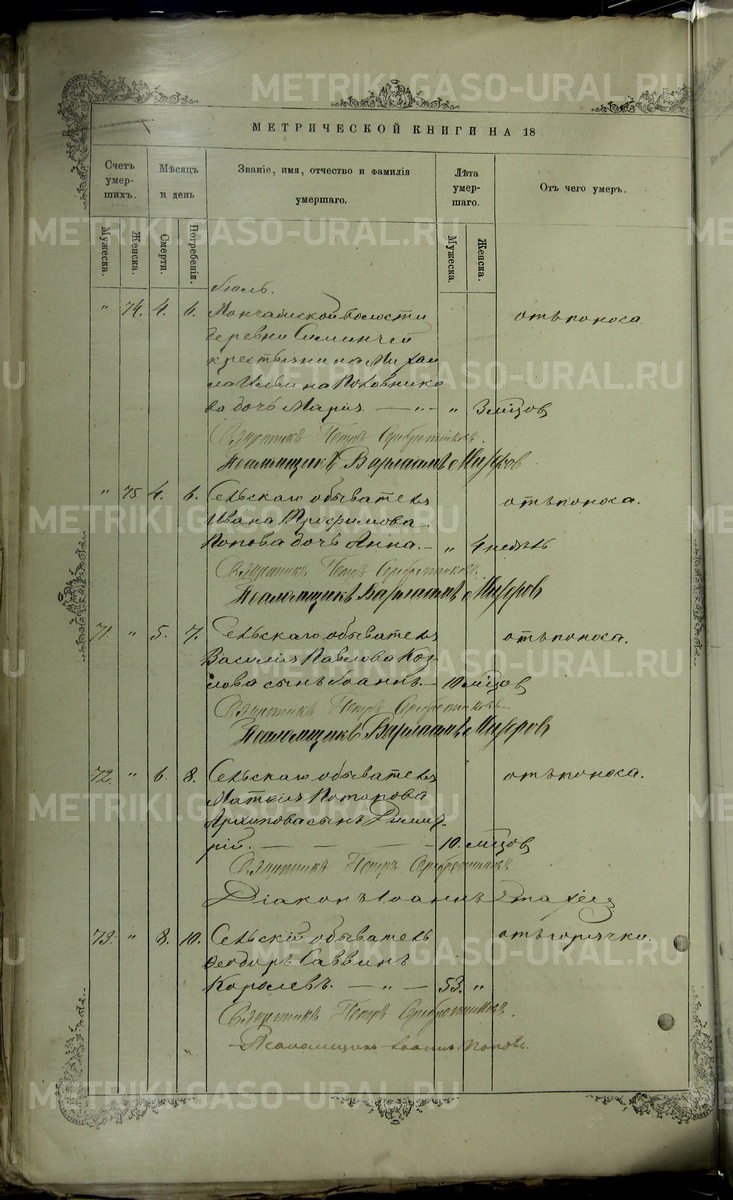 METRIKI.GASO-URAL.RU
МЕТРИЧЕСКОЙ КНИГИ НА 18
Счетъ умершихъ.
Мѣсяцъ и день
Званіе, имя, отчество и фамилія умершаго.
Лѣта умершаго.
Отъ чего умеръ.
Мужеска.
Женска.
Смерти.
Погребенія.
Мужеска.
Женска.
" 74. 4. 6. волости отъ поноса.
деревни
крестьянина Михаи
ла Ильина
ва дочь Марія — " — " 3 мѣсцов
Священникъ Петръ Серебренниковъ.
Псаломщикъ Варлаамъ
" 75. 4. 6. Сельскаго обывателя отъ поноса.
Ивана Трофимова
Попова дочь Анна. — " 4 недѣль
Священникъ Петръ Серебренниковъ.
Псаломщикъ Варлаамъ
71 " 5. 7. Сельскаго обывателя отъ поноса.
Василія Павлова Коз
лова сынъ Іоаннъ. — 10 мѣсцов
Священникъ Петръ Серебренниковъ
Псаломщикъ Варлаамъ
72. " 6. 8. Сельскаго обывателя отъ поноса.
Потапова
Архипова сынъ Димит
рій. — — — 10. мѣсцов
Священникъ Петръ Серебренниковъ
Діаконъ Іоаннъ
73. " 8. 10. Сельскій обыватель отъ горячки.
Ѳеодоръ Саввинъ
Королевъ. — " — 53. "
Священникъ Петръ Серебренниковъ.
Псаломщикъ Іоаннъ Поповъ.